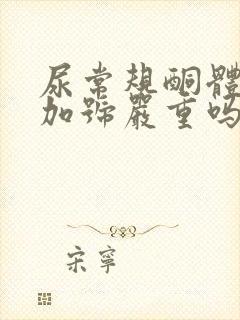 尿常規酮體
加號嚴重嗎
宋寧